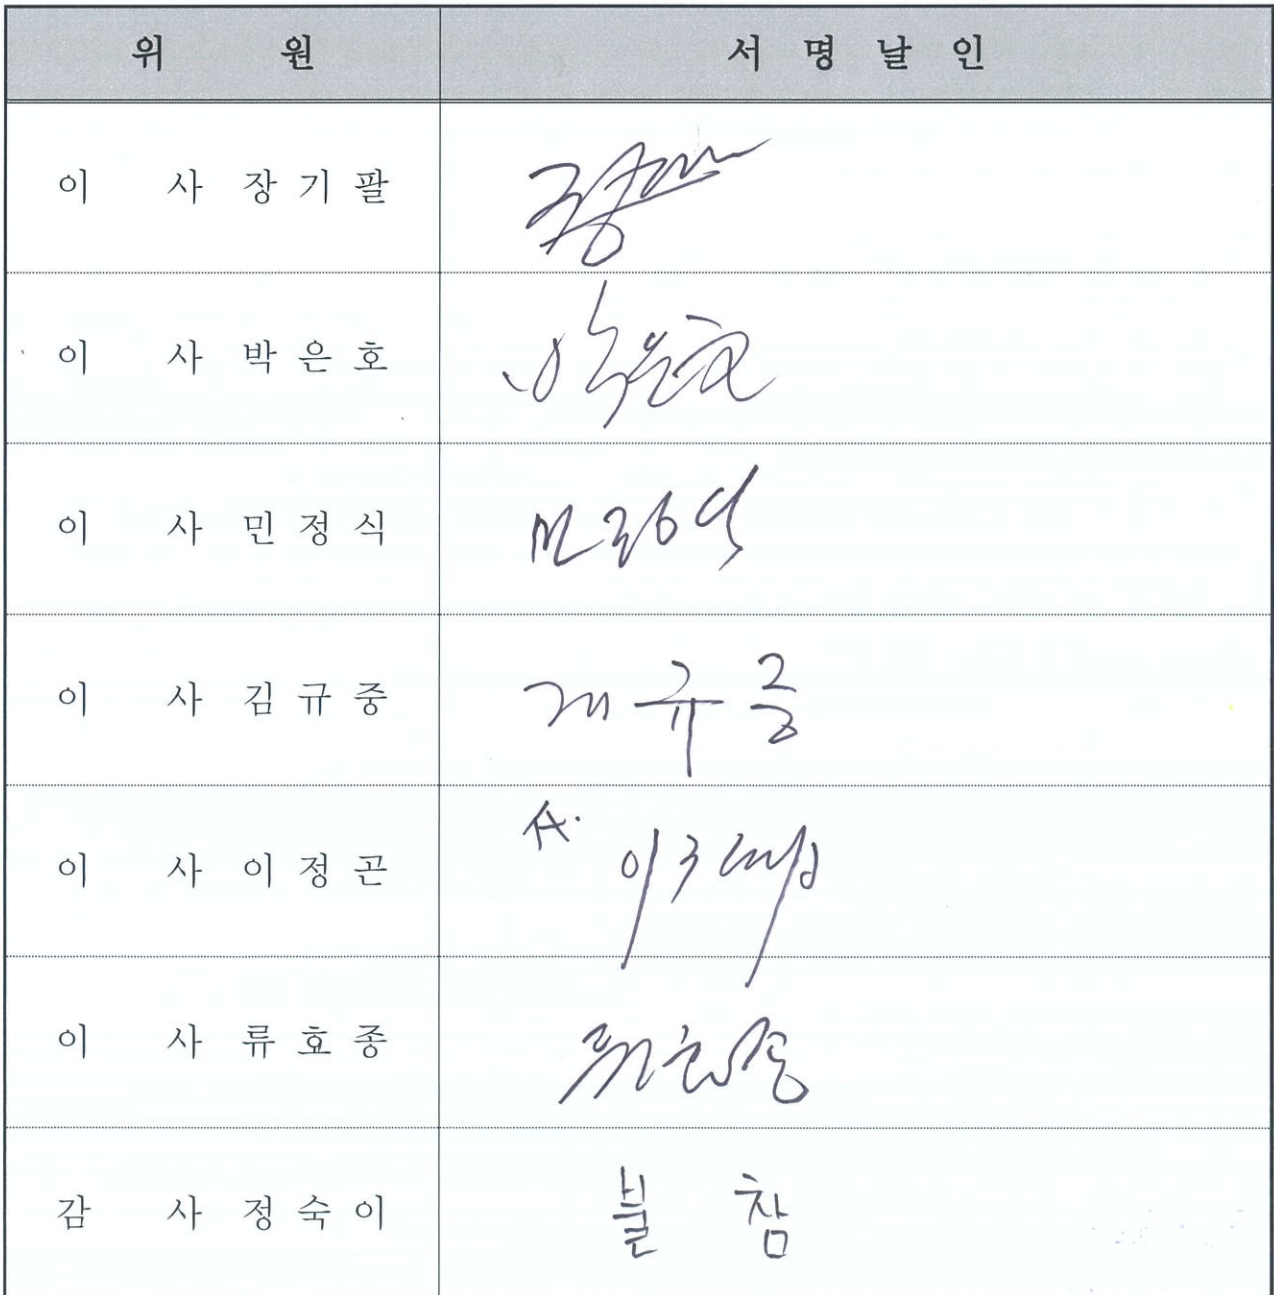 위 원 서 명 날 인
이 사 장 기 팔
이 사 박 은 호 박은호
이 사 민 정 식 민정식
이 사 김 규 중 김규중
이 사 이 정 곤
이 사 류 효 종 류효종
감 사 정 숙 이 불 참